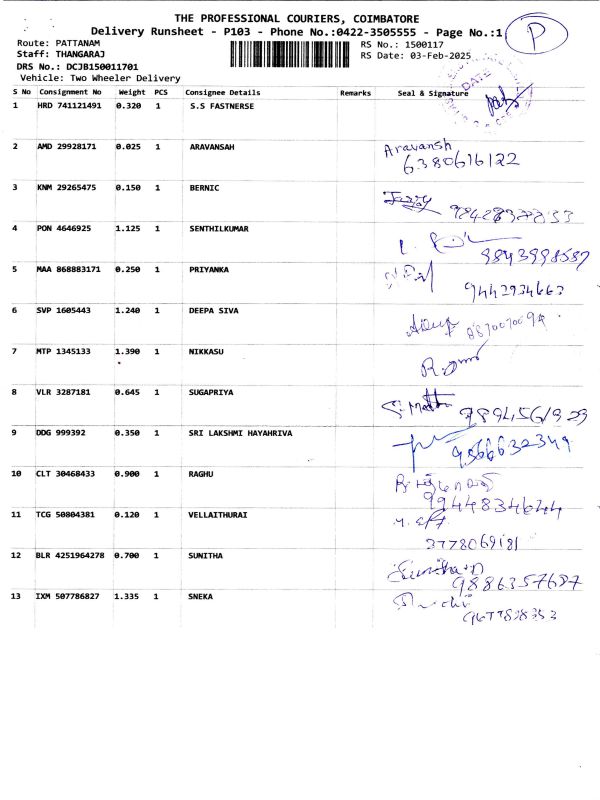 THE PROFESSIONAL COURIERS, COIMBATORE
Delivery Runsheet - P103 - Phone No.:0422-3505555 - Page No.:1
P
Route: PATTANAM
RS No.: 1500117
Staff: THANGARAJ
RS Date: 03-Feb-2025
DRS No.: DCJB150011701
Vehicle: Two Wheeler Delivery
DATE
S No Consignment No Weight PCS Consignee Details Remarks Seal & Signature
1 HRD 741121491 0.320 1 S.S FASTNERSE
2 AMD 29928171 0.025 1 ARAVANSAH Aravansh
6380616122
3 KNM 29265475 0.150 1 BERNIC
4 PON 4646925 1.125 1 SENTHILKUMAR
9843998587
5 MAA 868883171 0.250 1 PRIYANKA
9442934663
6 SVP 1605443 1.240 1 DEEPA SIVA
7 MTP 1345133 1.390 1 NIKKASU
8 VLR 3287181 0.645 1 SUGAPRIYA
9 DDG 999392 0.350 1 SRI LAKSHMI HAYAHRIVA
9566632349
10 CLT 30468433 0.900 1 RAGHU
9944834644
11 TCG 50804381 0.120 1 VELLAITHURAI
3778069181
12 BLR 4251964278 0.700 1 SUNITHA
9886357687
13 IXM 507786827 1.335 1 SNEKA